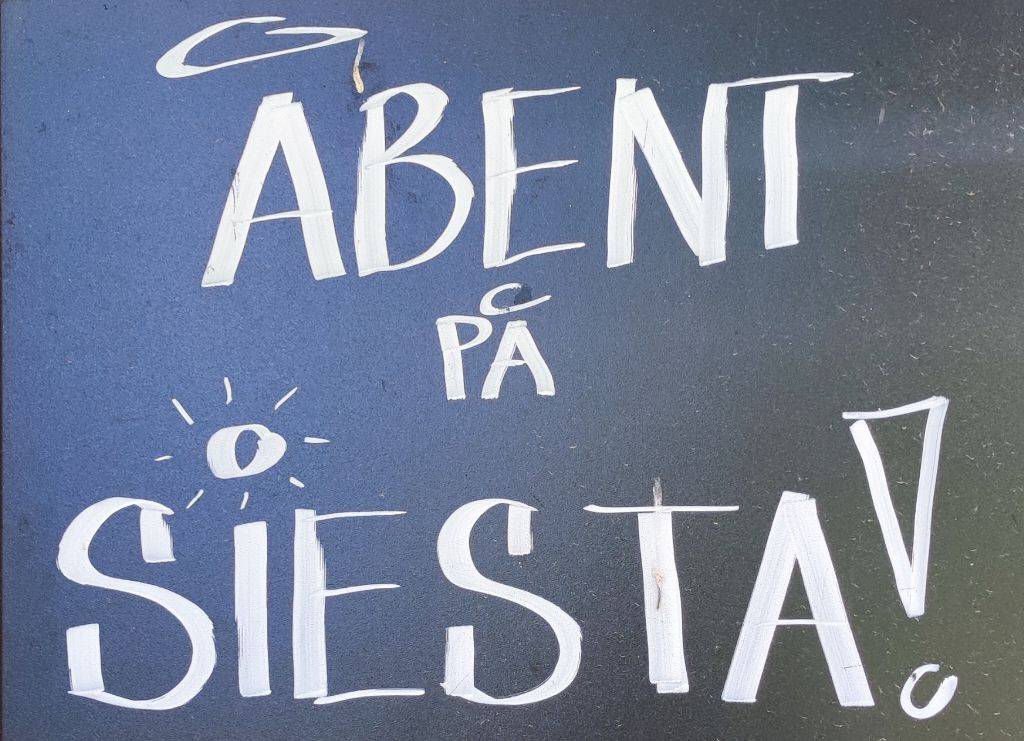 ÅBENT
PÅ
SIESTA!